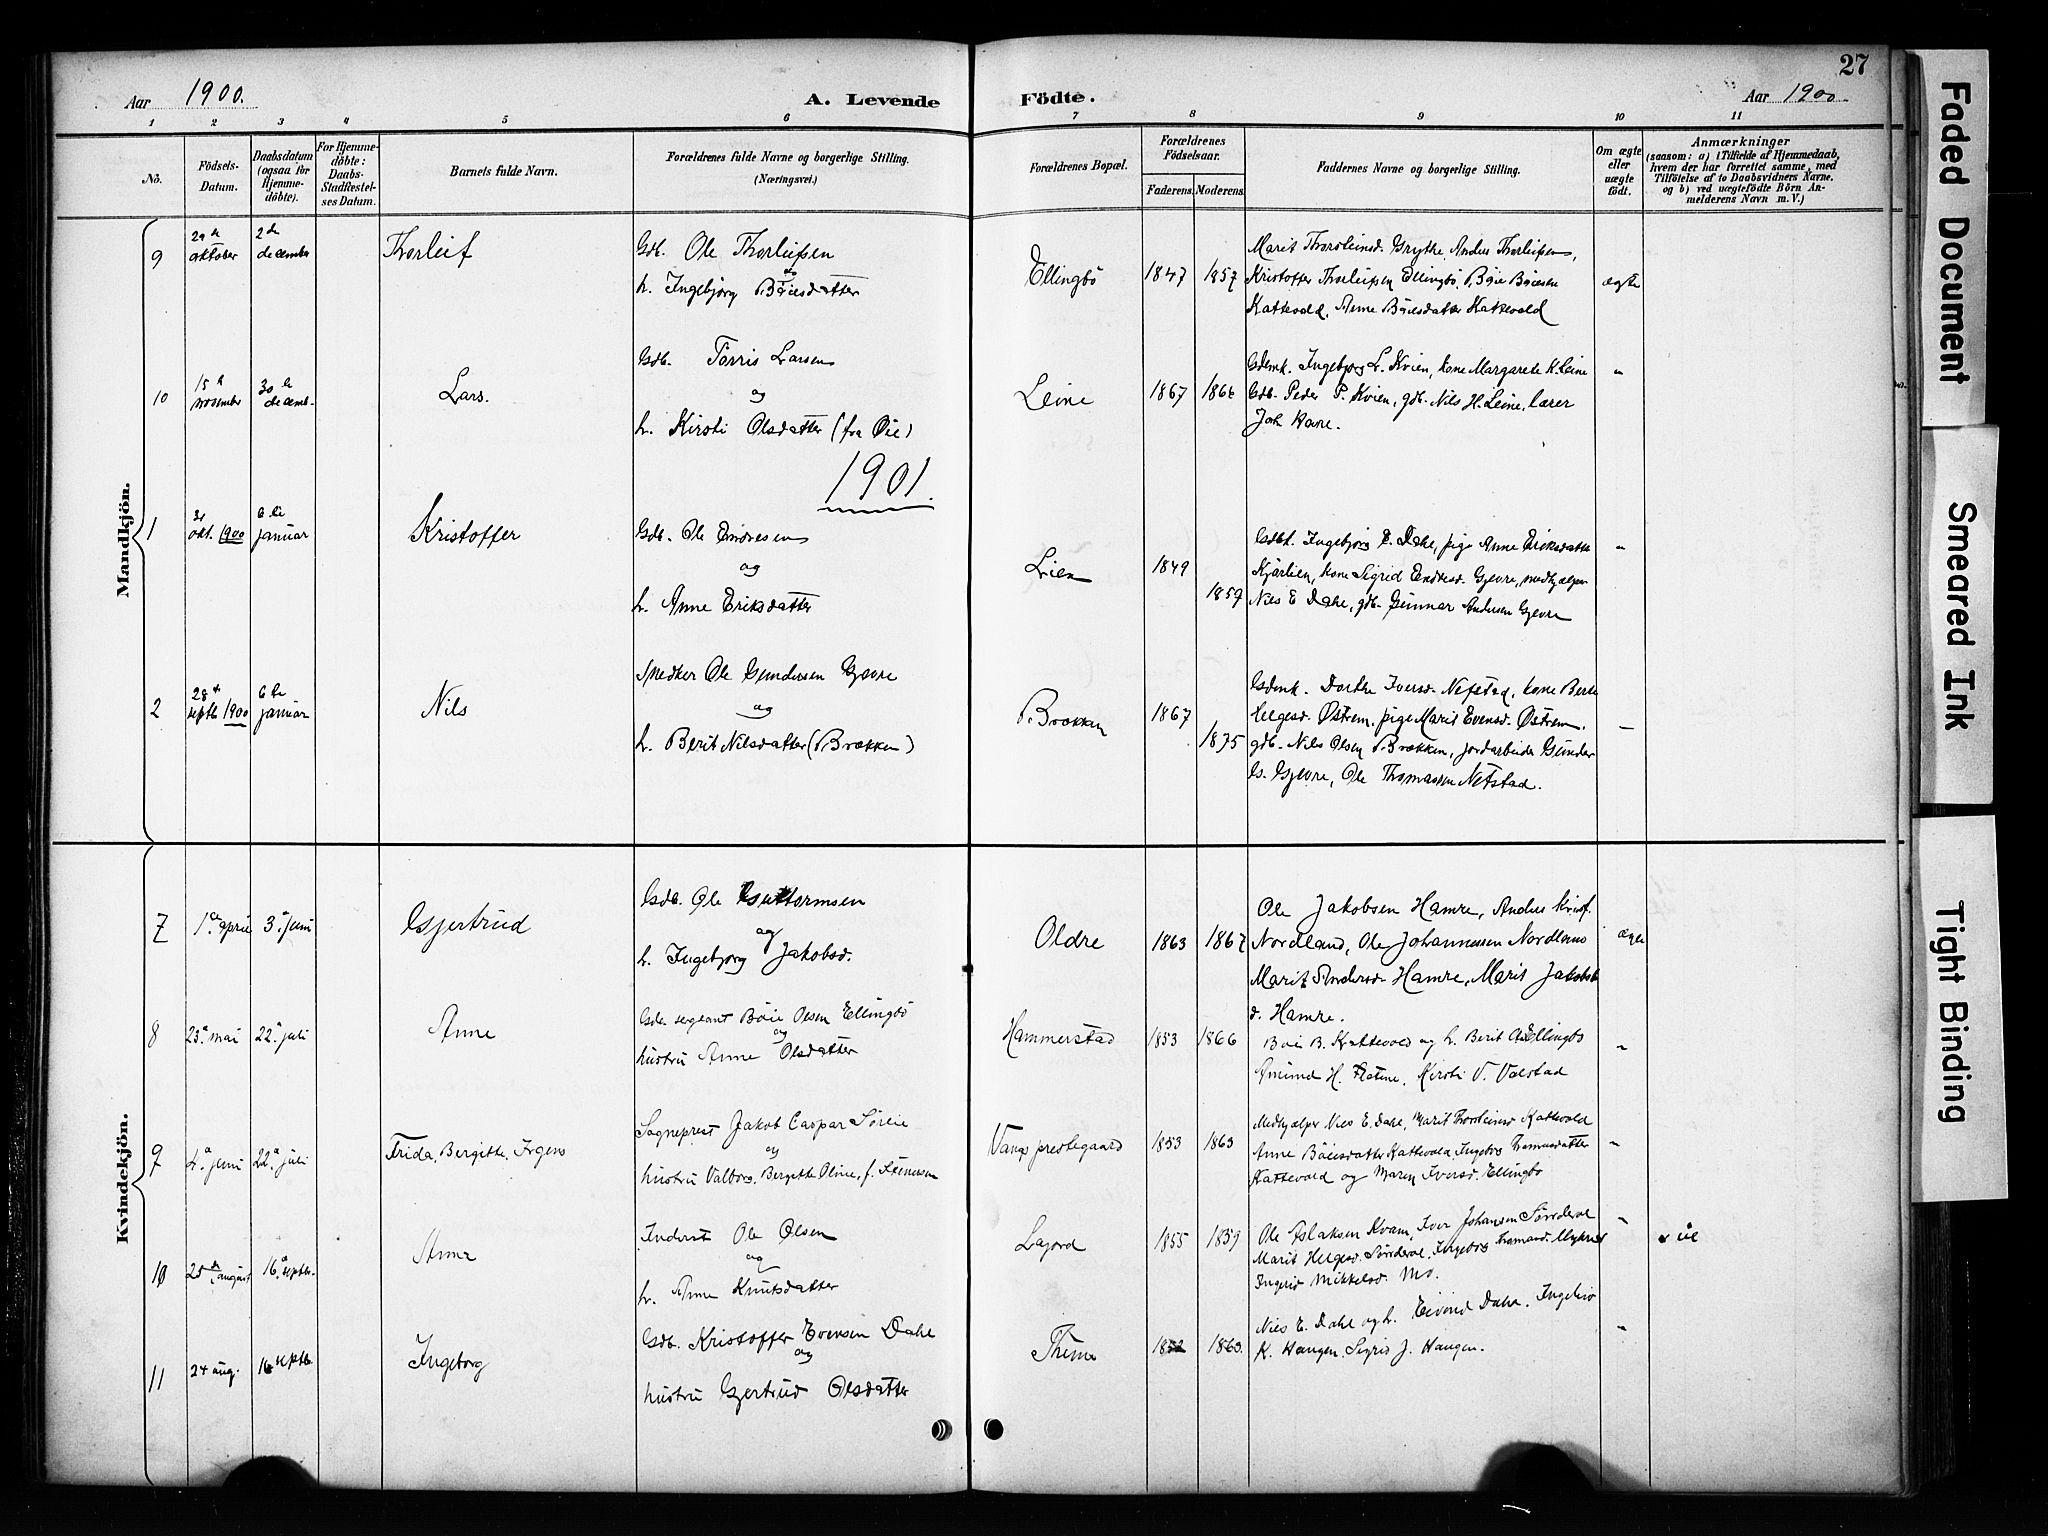 27
Aar 1900.
A. Levende Födte.
Aar 1900.
1 2 3 4 5 6 7 8 9 10 11
No.
Födsels-Datum.
Daabsdatum (ogsaa for Hjemmedöbte).
For Hjemmedöbte: Daabs-Stadfæstelses Datum.
Barnets fulde Navn.
Forældrenes fulde Navne og borgerlige Stilling.
(Næringsvei.)
Forældrenes Bopæl.
Forældrenes Födselsaar.
Faderens. Moderens.
Faddernes Navne og borgerlige Stilling.
Om ægte eller uægte födt.
Anmærkninger
(saasom: a) i Tilfælde af Hjemmedaab,
hvem der har forrettet samme, med
Tilföielse af to Daabsvidners Navne.
og b) ved uægtefödte Börn An-
melderens Navn m. V.)
Mandkjön.
9 29de oktober 2de december Thorleif
Gdb. Ole Thorleifsen
og
h. Ingebjørg Bøiesdatter
Ellingbö 1847 1857
Marit Thorsteinsd. Grythe, Anders Thorleifsen,
Kristoffer Thorleifsen Ellingbö, Böie Böiesen
Kattevold, Anne Böiesdatter Kattevold
ægte
10 15de november 30te decemb. Lars.
Gdb. Torris Larsen
og
h. Kirsti Olsdatter (fra Øie)
Leine 1867 1866
Gdmk. Ingebjørg L. Kvien, kone Margarete K. Leine
Gdb. Peder P. Kvien, gdb. Nils H. Leine, lærer
Joh. Kane.
"
1901.
1 31 okt. 1900 6te januar Kristoffer
Gdb. Ole Endresen
og
h. Anne Eriksdatter
Lien 1849 1859
Gdbk. Ingebjørg E. Dahl, pige Anne Eriksdatter
Kjørlien, kone Sigrid Endresd. Gjevre, medhjælper
Nils E Dahl, gdb. Gunnar Andersen Gjevre
"
2 28de septb. 1900 6te januar Nils
Snedker Ole Gundersen Gjevre
og
h. Berit Nilsdatter (Brækken)
Brækken 1867 1875
Gdmk. Dorthe Iversd. Nefstad, kone Berit
Helgesd. Østrem, pige Marit Evensd. Østrem.
gdb. Nils Olsen Brækken, jordarbeider Gunder
G. Gjevre, Ole Thomassen Nefstad.
—
Kvindekjön.
7 1de april 3de juni Gjertrud
Gdb. Ole Guttormsen
og
h. Ingebjørg Jakobsd.
Oldre 1863 1867
Ole Jakobsen Hamre, Anders Kristf.
Nordland, Ole Johannessen Nordland
Marit Andersd Hamre, Marit Jakobs
d. Hamre.
ægte
8 23de mai 22de juli Anne
Gdb. sergeant Böie Olsen Ellingbö
og
hustru Anne Olsdatter
Hammerstad 1853 1866
Boie B. Kattevold og h. Berit Ellingbö
Amund H. Fletine, Kirsti V. Valstad
"
9 4de juni 22de juli Frida, Bergitte, Irgens
Sogneprest Jakob Caspar Sörlie
og
hustru Valborg, Bergitte Oline, f. Stenersen
Vangs prestegaard 1853 1863
Medhjælper Nils E. Dahl, Marit Thorsteinsd Kattevold
Anne Böiesdatter Kattevold, Ingeborg Thomasdatter
Kattevold og Marey Iversd. Ellingbö
"
10 25de august 16de septb. Anna
Inderst Ole Olsen
og
h. Anne Knutsdatter
Lajord 1855 1859
Ole Aslaksen Kvam, Iver Johansen Sönderol
Marit Helgesd. Sönderol, Ingeborg Thomasd.
Ingerid Mikkelsd. Mo.
"
11 24 aug. 16 septb. Ingeborg
Gdb. Kristoffer Evensen Dahl
og
hustru Gjertrud Olsdatter
Thune 1860.
Nils E. Dahl og h. Eivind Dahl, Ingebor
K. Haugen, Sigrid J. Haugen.
"
Faded Document
Smeared Ink
Tight Binding